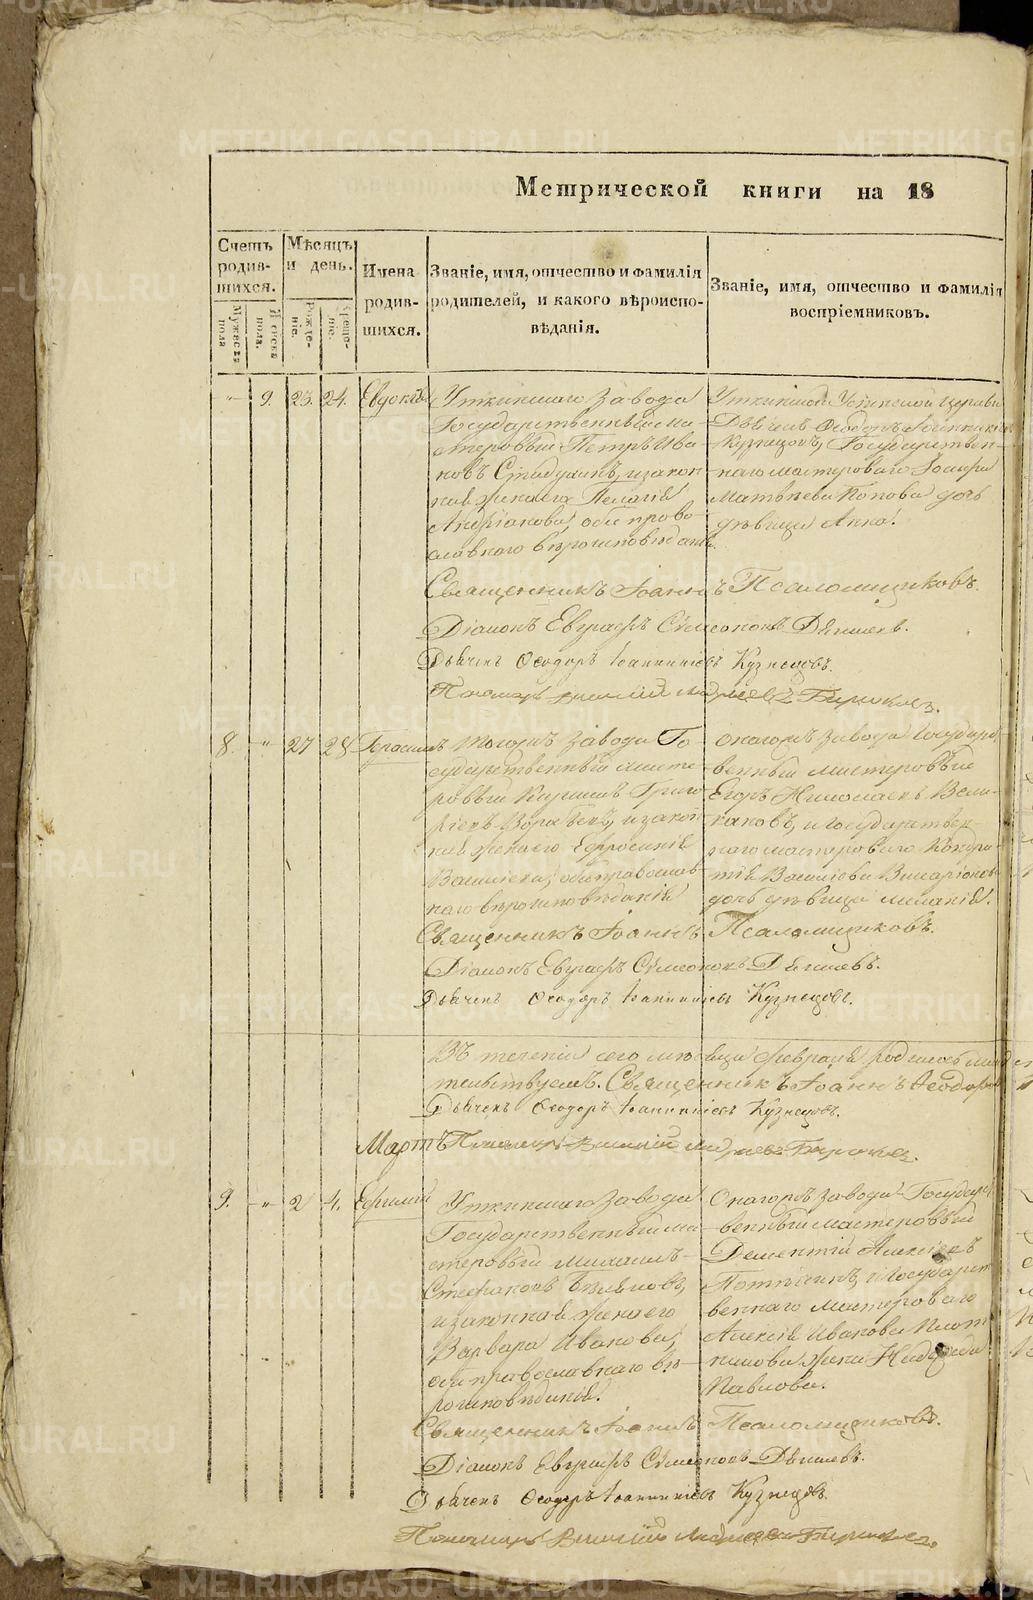 METRIKI.GASO-URAL.RU
Метрической книги на 18
Счетъ родив-шихся.
Мужеска пола
Женска пола.
Мѣсяцъ и день.
Рожде-ніе.
Креще-ніе.
Имена родив-шихся.
Званіе, имя, отчество и фамилія
родителей, и какого вѣроиспо-
вѣданія.
Званіе, имя, отчество и фамилія
воспріемниковъ.
„ 9. 23. 24. Евдокія
Уткинскаго завода
Государственный ма-
стеровый Петръ Ива-
новъ и закон-
ная жена его Пелагія
Андріанова, оба право-
славнаго вѣроисповѣданія.
Уткинской церкви
Дьячекъ Ѳеодоръ Іоанникіевъ
Кузнецовъ, Государствен-
наго мастероваго
Матвѣева Попова дочь
дѣвица Анна.
Священникъ Іоаннъ Псаломщиковъ.
Діаконъ Евграфъ Сѵмеоновъ
Дьячекъ Ѳеодоръ Іоанникіевъ Кузнецовъ.
Пономарь Василій Андреевъ Бирюковъ.
8. „ 27 28 Герасимъ
Тогожъ завода Го-
сударственный масте-
ровый Григо-
рьевъ и закон-
ная жена его Ефросинія
Василіева, оба православ-
наго вѣроисповѣданія
Онагожъ завода Государст-
венный мастеровый
Егоръ Николаевъ
и Государствен-
наго мастероваго Кондра-
тія Василіева
дочь дѣвица Меланія.
Священникъ Іоаннъ Псаломщиковъ.
Діаконъ Евграфъ Сѵмеоновъ
Дьячекъ Ѳеодоръ Іоанникіевъ Кузнецовъ.
Въ теченіи сего мѣсяца февраля родилось
Священникъ Іоаннъ
Дьячекъ Ѳеодоръ Іоанникіевъ Кузнецовъ.
Мартъ Пономарь Василій Андреевъ Бирюковъ.
9. „ 2 4. Евгеній
Уткинскаго завода
Государственный ма-
стеровый Михаилъ
Стефановъ
и законная жена его
Варвара Иванова,
оба православнаго вѣ-
роисповѣданія.
Онагожъ завода Государст-
венный мастеровый
Дементій Алексѣевъ
и Государст-
веннаго мастероваго
Алексія Иванова Плот-
никова жена Надежда
Павлова.
Священникъ Іоаннъ Псаломщиковъ.
Діаконъ Евграфъ Сѵмеоновъ
Дьячекъ Ѳеодоръ Іоанникіевъ Кузнецовъ.
Пономарь Василій Андреевъ Бирюковъ.